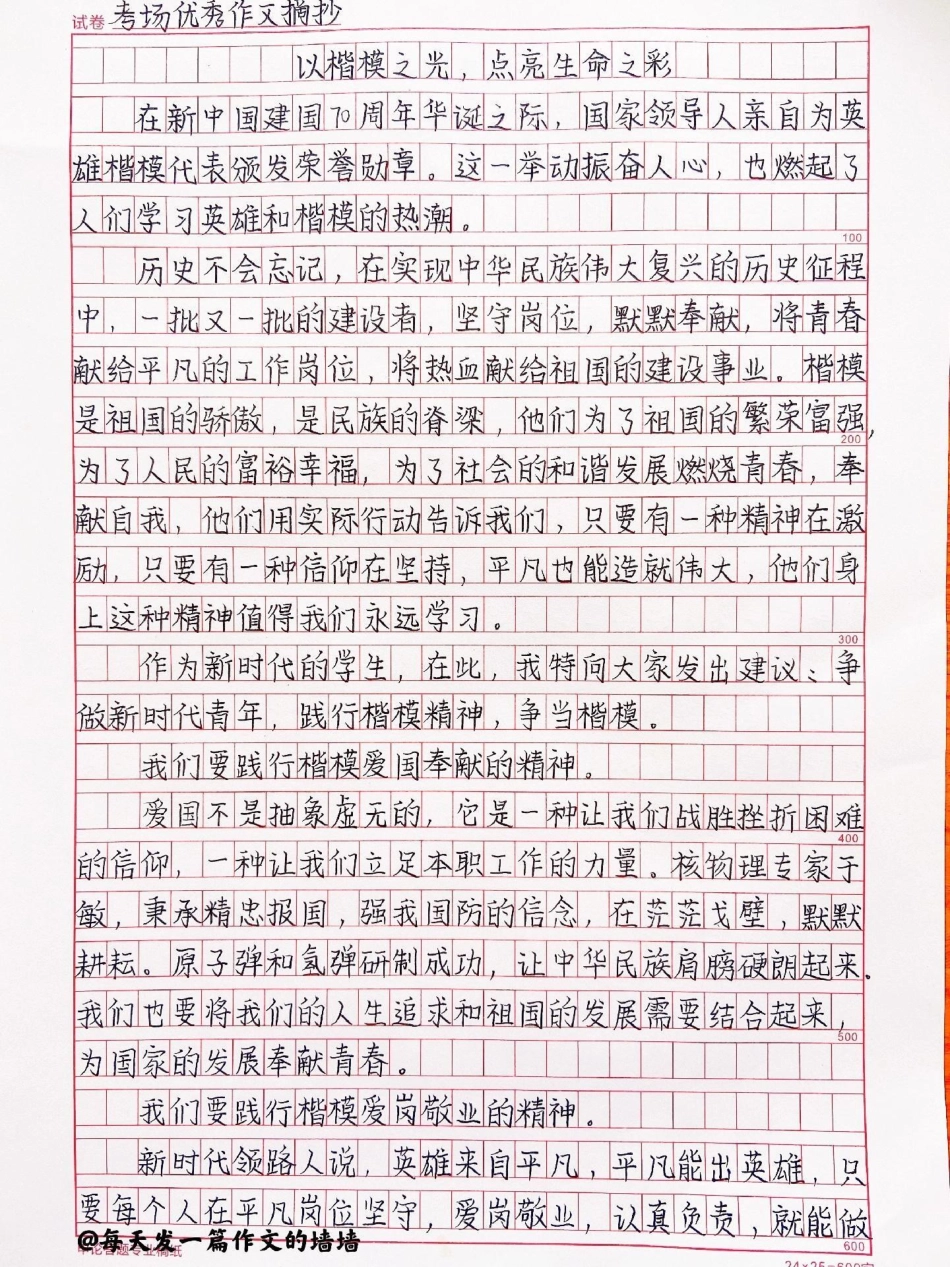 试卷 考场优秀作文摘抄
以楷模之光，点亮生命之彩
在新中国建国70周年华诞之际，国家领导人亲自为英
雄楷模代表颁发荣誉勋章。这一举动振奋人心，也燃起了
人们学习英雄和楷模的热潮。
100
历史不会忘记，在实现中华民族伟大复兴的历史征程
中，一批又一批的建设者，坚守岗位，默默奉献，将青春
献给平凡的工作岗位，将热血献给祖国的建设事业。楷模
是祖国的骄傲，是民族的脊梁，他们为了祖国的繁荣富强，
200
为了人民的富裕幸福，为了社会的和谐发展燃烧青春，奉
献自我，他们用实际行动告诉我们，只要有一种精神在激
励，只要有一种信仰在坚持，平凡也能造就伟大，他们身
上这种精神值得我们永远学习。
300
作为新时代的学生，在此，我特向大家发出建议：争
做新时代青年，践行楷模精神，争当楷模。
我们要践行楷模爱国奉献的精神。
爱国不是抽象虚无的，它是一种让我们战胜挫折困难
400
的信仰，一种让我们立足本职工作的力量。核物理专家于
敏，秉承精忠报国，强我国防的信念，在茫茫戈壁，默默
耕耘。原子弹和氢弹研制成功，让中华民族肩膀硬朗起来。
我们也要将我们的人生追求和祖国的发展需要结合起来，
500
为国家的发展奉献青春。
我们要践行楷模爱岗敬业的精神。
新时代领路人说，英雄来自平凡，平凡能出英雄，只
要每个人在平凡岗位坚守，爱岗敬业，认真负责，就能做
@每天发一篇作文的墙墙
申论答题专业稿纸
600
24×25=600字